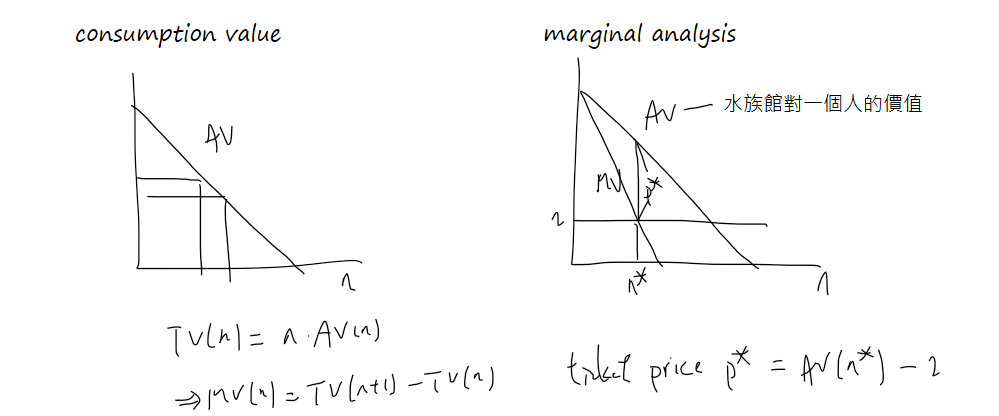 consumption value
AV
n
TV(n) = n · AV(n)
⇒ MV(n) = TV(n+1) - TV(n)
marginal analysis
AV — 水族館對一個人的價值
MV
p*
2
n*
n
ticket price p* = AV(n*) - 2